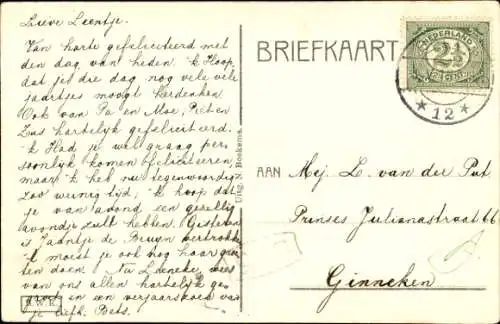 Lieve Leentje.
Van harte gefeliciteerd met
den dag van heden. 'k Hoop
dat je die dag nog vele vele
jaartjes moogt herdenken
Ook van Pa en Moe, Piet en
hartelijk gefeliciteerd.
'k Had je wel graag per
soonlijk komen feliciteeren,
maar 'k heb nu tegenwoordig
zoo weinig tijd, 'k hoop dat
je van avond een gezellig
avondje zult hebben. Gisteren
is Jaantje de Bruyn vertrokke
'k moest je ook nog haar groe
ten doen. Nu Leeneke, wees
van ons allen hartelijk ge
groet en een verjaarskoes van
je liefh. Bets.
BRIEFKAART
NEDERLAND
2½
CENT
* 12 *
Uitg. N. Boekema.
AAN
Mej. L. van der Put
Prinses Julianastraat 66
Ginneken